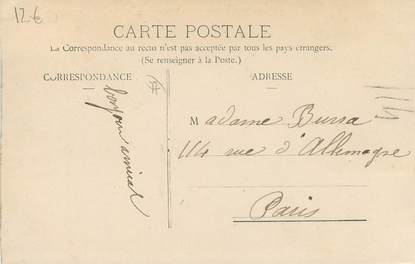 12 €
CARTE POSTALE
La Correspondance au recto n'est pas acceptée par tous les pays étrangers.
(Se renseigner à la Poste.)
CORRESPONDANCE
ADRESSE
bonjour amical
Madame Burra
114 rue d'Allemagne
Paris